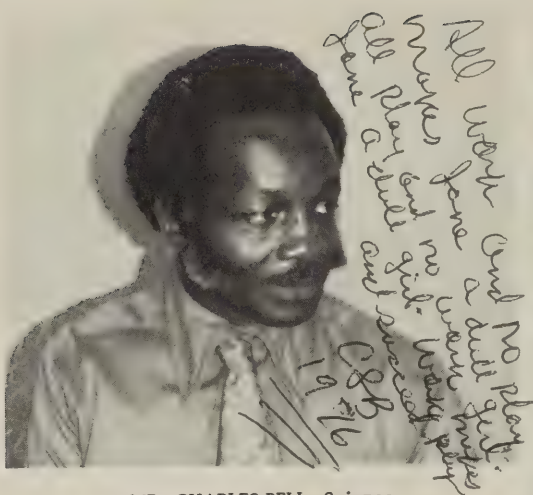 All work and no play
makes Jane a dull girl.
all play and no work makes
Jane a dull girl. Work, play
and succeed.
CSB
1976
CHARLES BELL